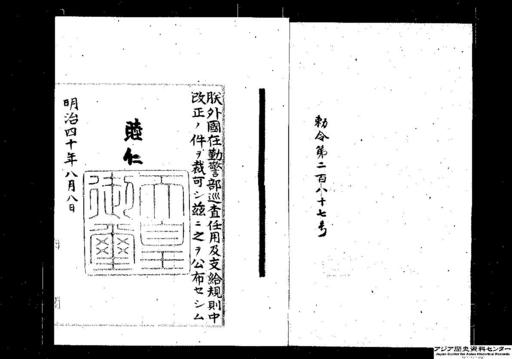 勅令第二百八十七号
朕外國在勤警部巡査任用及支給規則中
改正ノ件ヲ裁可シ茲ニ之ヲ公布セシム
睦仁
天皇
御璽
明治四十年八月八日
アジア歴史資料センター
Japan Center for Asian Historical Records